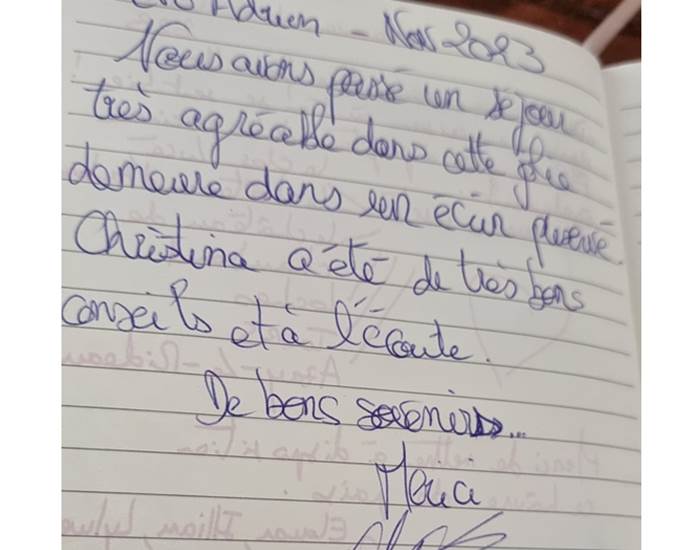 Adrien - Nov 2023
Nous avons passé un séjour
très agréable dans cette
demeure dans un écrin
Christina a été de très bons
conseils et à l'écoute.
De bons souvenirs...